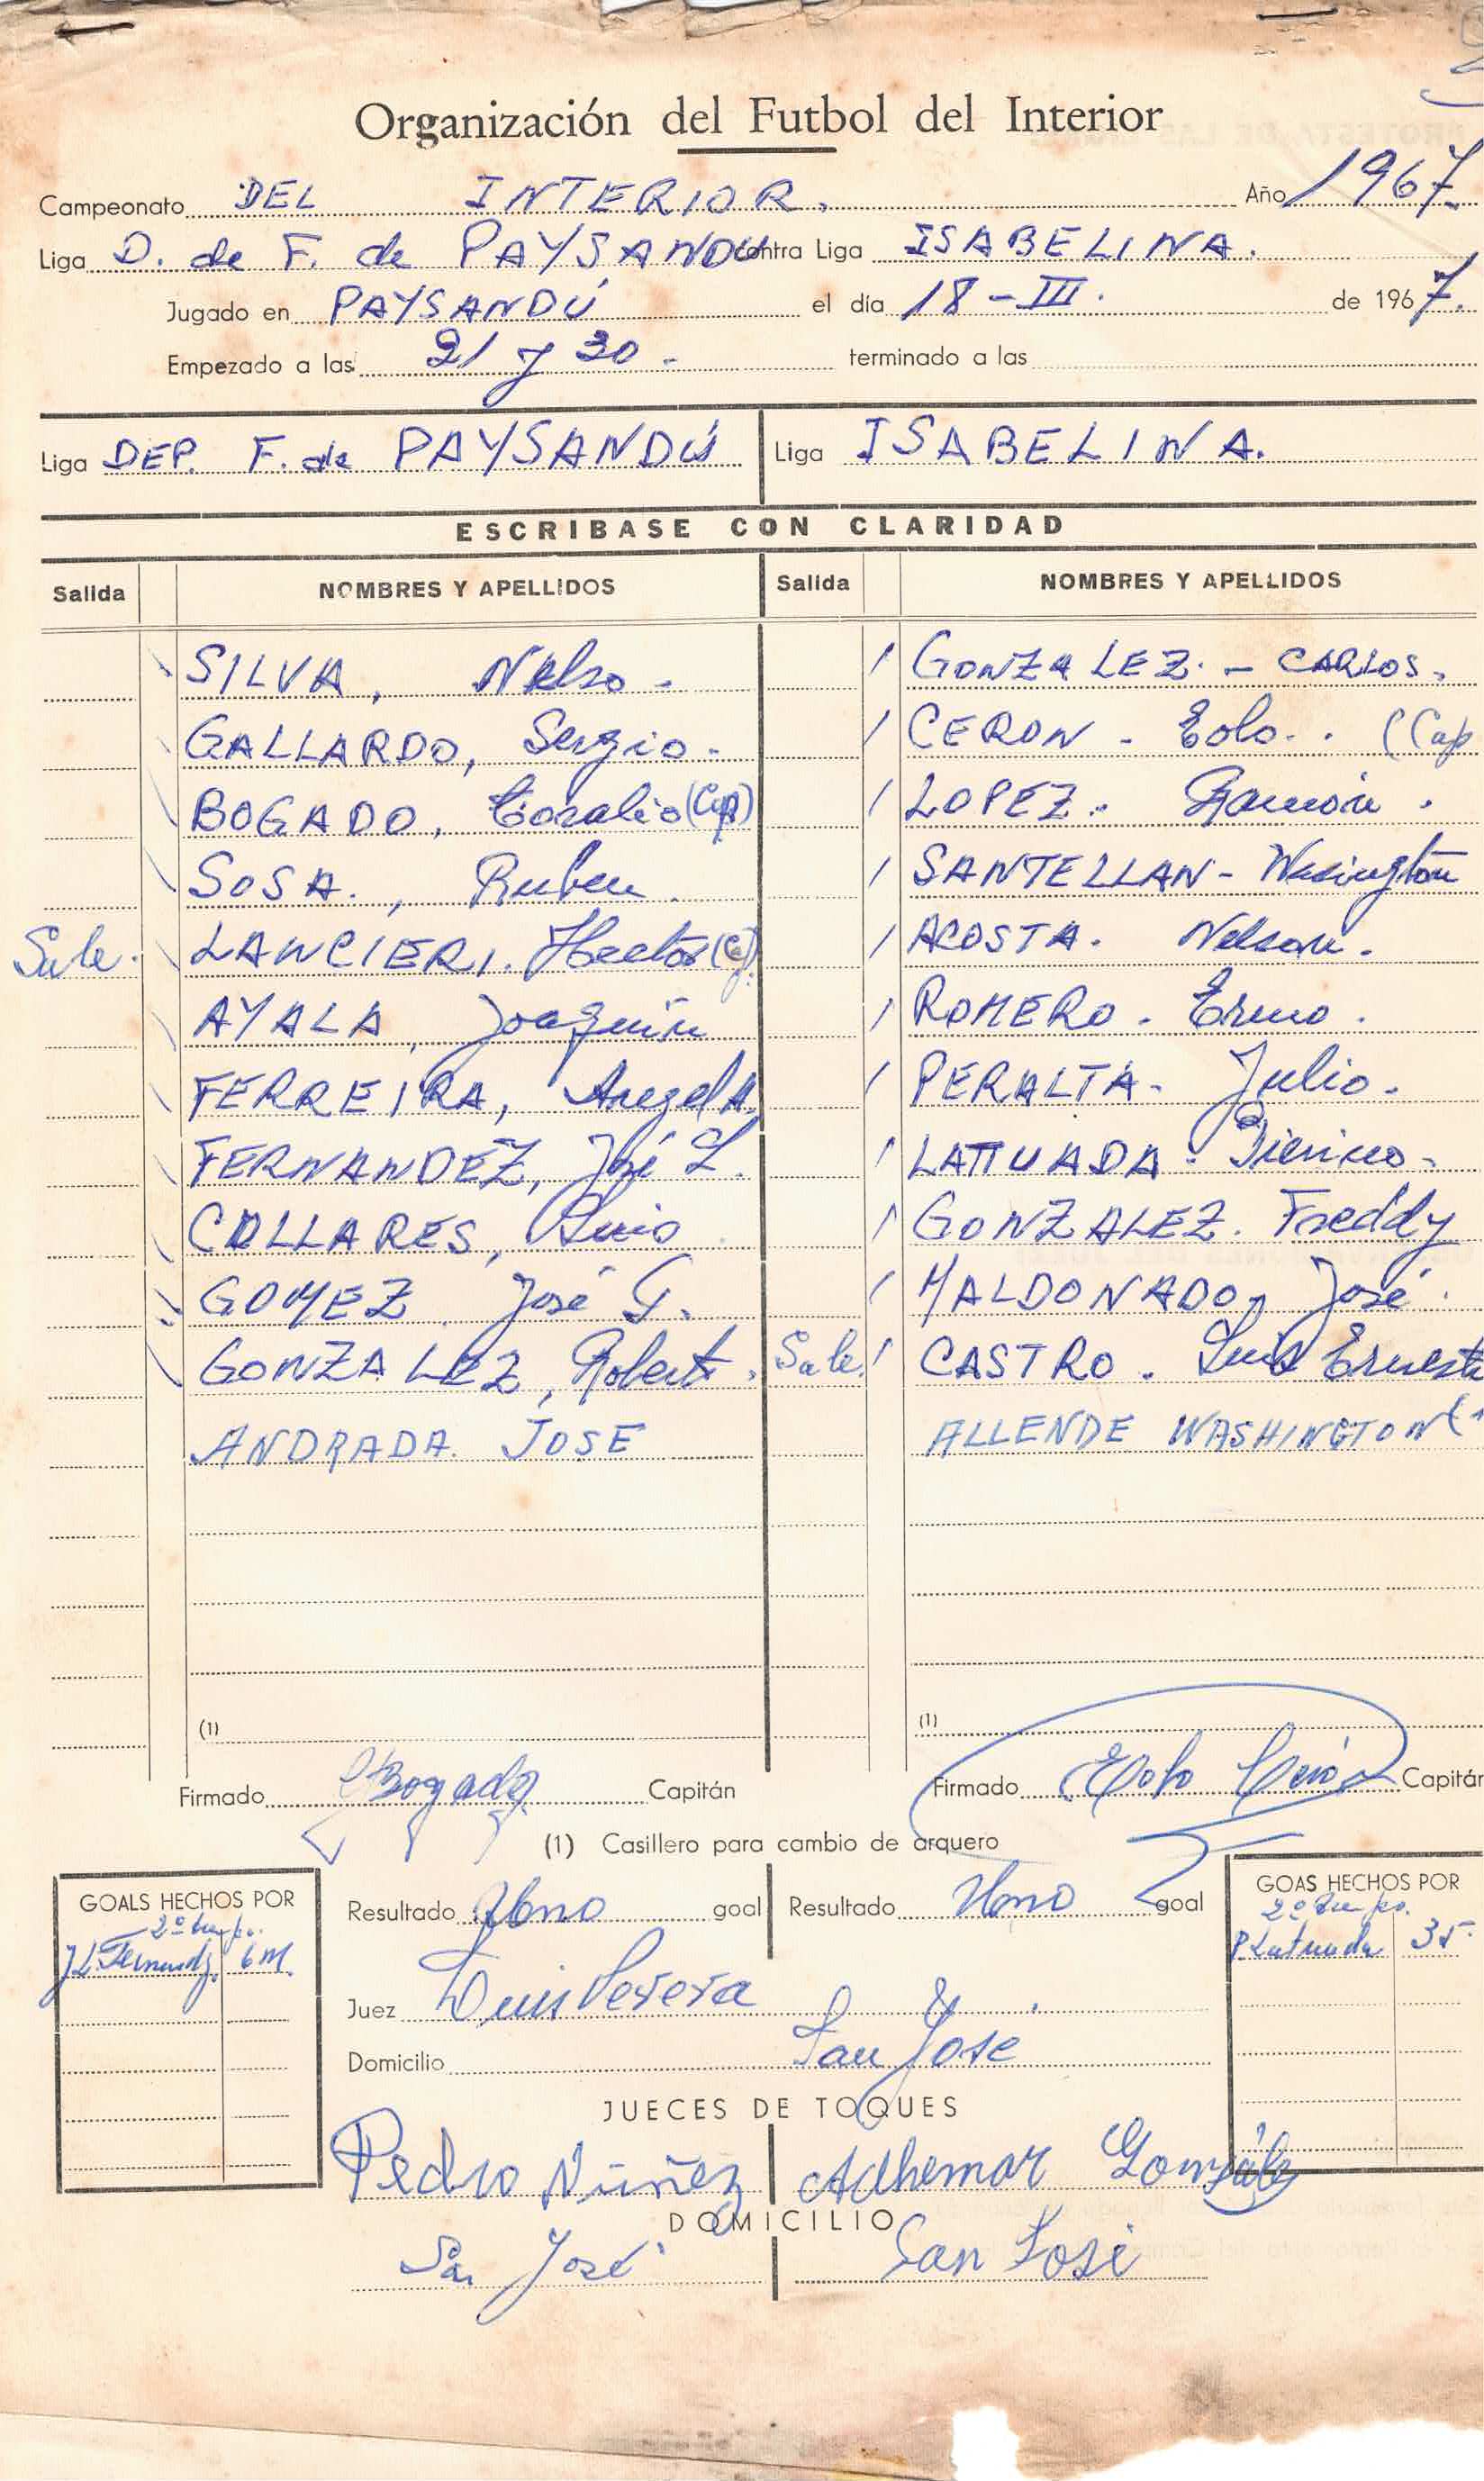 Organización del Futbol del Interior
Campeonato DEL INTERIOR. Año 1967.
Liga D. de F. de PAYSANDU contra Liga ISABELINA.
Jugado en PAYSANDÚ el día 18-III. de 1967.
Empezado a las 21 y 30 - terminado a las
Liga DEP. F. de PAYSANDÚ Liga ISABELINA.
ESCRIBASE CON CLARIDAD
Salida NOMBRES Y APELLIDOS Salida NOMBRES Y APELLIDOS
SILVA, Nelso - GONZALEZ. - CARLOS.
GALLARDO, Sergio - CERON - Eolo. . (Cap
BOGADO, (Cap) LOPEZ. Ramón .
SOSA., Ruben. SANTELLAN - Wasington
Sale. LANCIERI. Hector ACOSTA. Nelson.
AYALA, Joaquín ROMERO. Ermo.
FERREIRA, Angel A. PERALTA. Julio.
FERNANDEZ, José L. LATTUADA. Pierino.
COLLARES, Luis GONZALEZ. Freddy
GOMEZ José G. MALDONADO, José.
GONZALEZ, Robert. Sale CASTRO. Luis Ernesto
ANDRADA. JOSE ALLENDE WASHINGTON
(1) (1)
Firmado Bogado Capitán Firmado Eolo Cerón Capitán
(1) Casillero para cambio de arquero
GOALS HECHOS POR Resultado Uno goal Resultado Uno goal GOAS HECHOS POR
2º tiempo. 2º Tiempo.
J.L. Fernandz. 6 M. P Latuada 35.
Juez Luis Perera
Domicilio San Jose
JUECES DE TOQUES
Pedro Núñez Adhemar González
DOMICILIO
San José San José